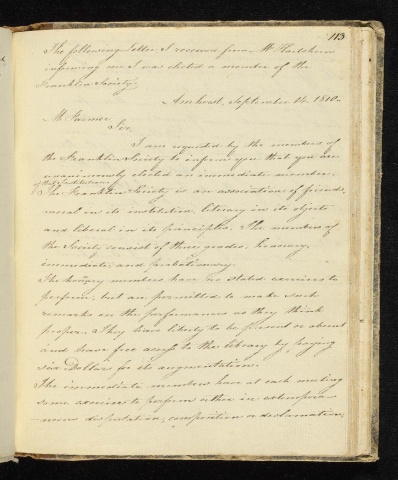 113
The following letter I received from Mr
informing me I was elected a member of the
Franklin Society.
Amherst, September 14. 1810.
Mr Farmer.
Sir,
I am requested by the members of
the Franklin Society to inform you that you are
unanimously elected an immediate member.
of this Institution
The Franklin Society is an association of friends,
moral in its institution, literary in its objects
and liberal in its principles. The members of
the Society consist of three grades, honorary,
immediate, and probationary.
The honry members have no stated exercises to
perform, but are permitted to make such
remarks on the performances as they think
proper. They have liberty to be present or absent
and have free access to the library by paying
six Dollars for its augmentation.
The immediate members have at each meeting
some exercise to perform either in extempora-
neous disputation, composition or declamation,